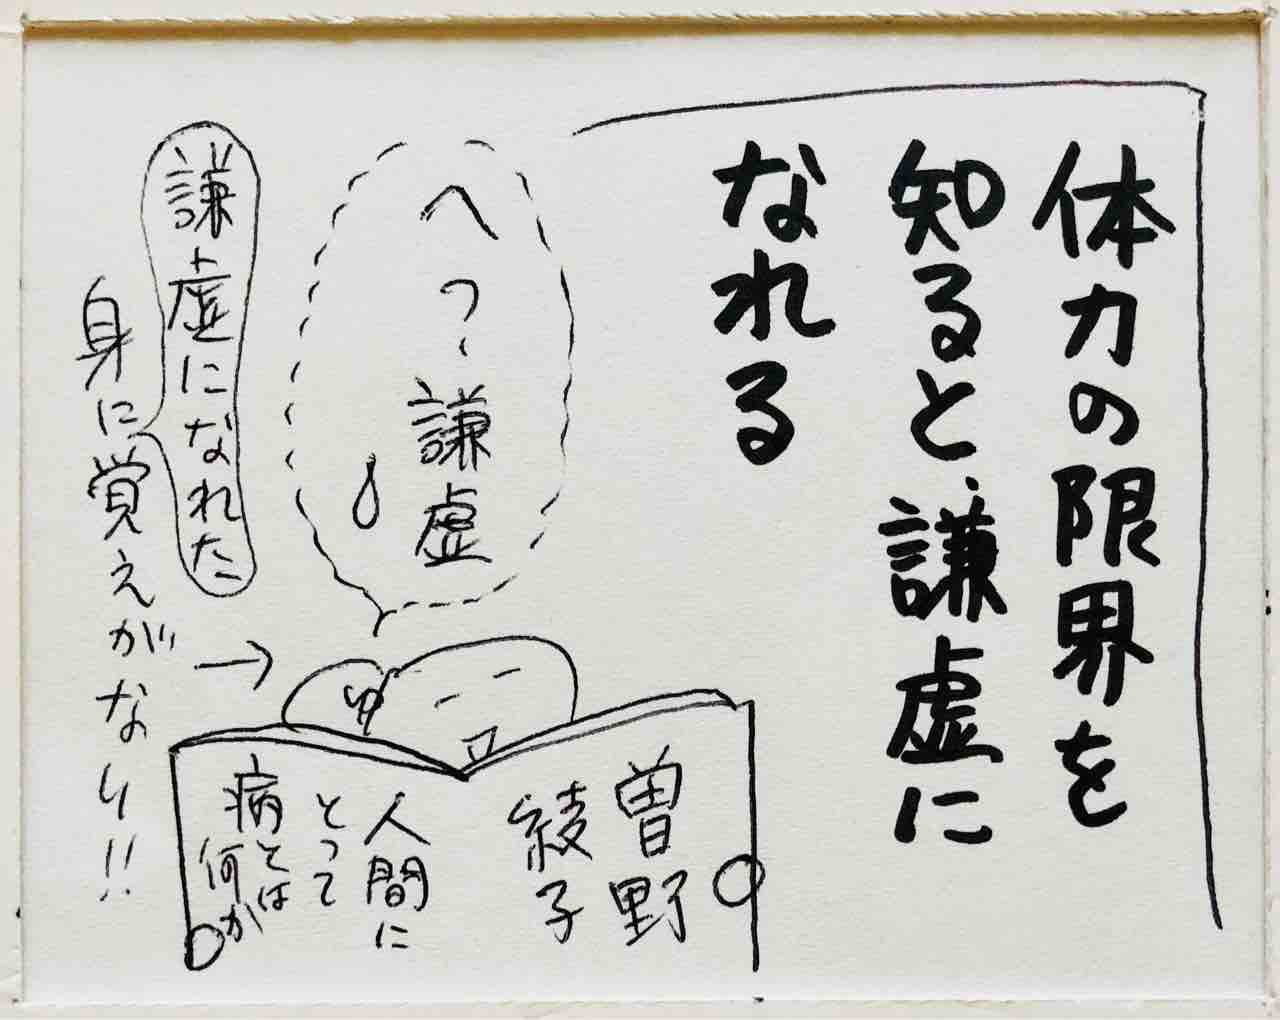 体力の限界を
知ると、謙虚に
なれる
へっ、謙虚
謙虚になれた
身に覚えがなり!!
曽野
綾子
人間に
とって
病とは
何か